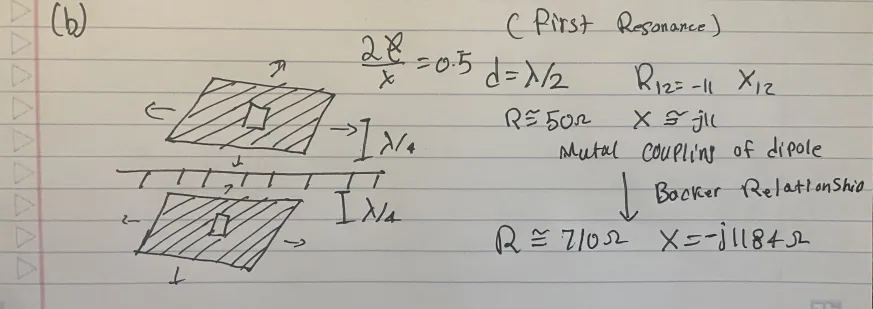 (b)
(First Resonance)
2ℓ/x = 0.5
d = λ/2 R12 = -11 X12
R ≅ 50Ω X ≅ j11
λ/4
Mutal Coupling of dipole
Backer Relationship
λ/4
R ≅ 710Ω X = -j1184Ω